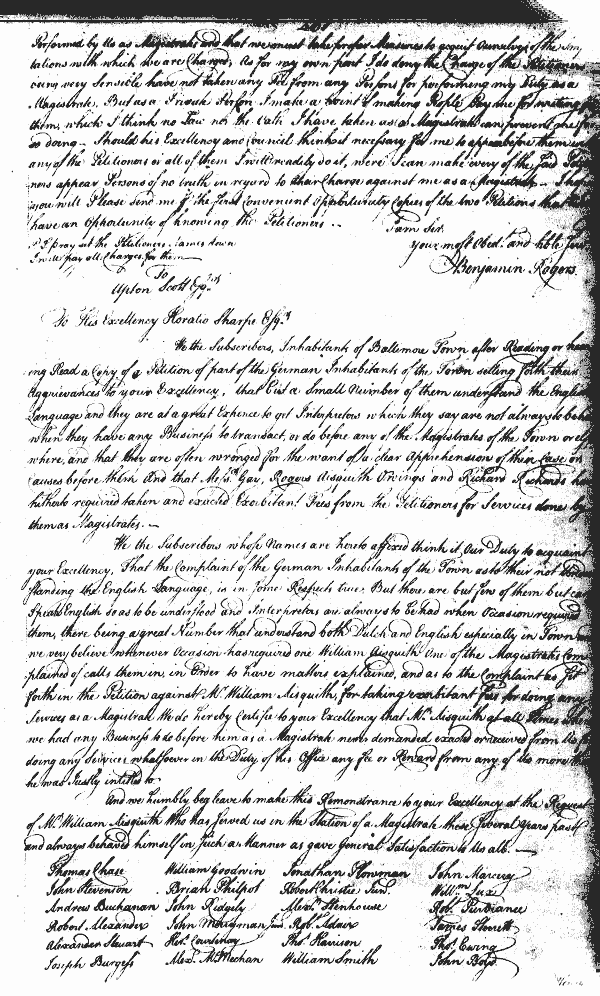 Performed by Us as Magistrates and that we must take proper Measures to acquit Ourselves of the
tations with which we are Charged, As for my own part I do deny the Charge of the Petitioners
being very Sensible have not taken any Fee from any Persons for performing my Duty as a
Magistrate. But as a Private Person I make a point of making People pay me for writing for
them, which I think no Law nor the Oath I have taken as a Magistrate can prevent me from
so doing. Should his Excellency and Council think it necessary for me to appear before them
any of the Petitioners or all of them I will readily do it, were I can make every of the said
ners appear Persons of no truth in regard to their Charge against me as a Magistrate. I hope
you will Please send me by the first Convenient Oppertunity Copies of the two Petitions that
have an Oppertunity of knowing the Petitioners. I am Sir
P.S. pray let the Petitioners Names down
I will pay all Charges for them
your most Obedt. and hble Servt
Benjamin Rogers
To
Upton Scott Esqr.
To His Excellency Horatio Sharpe Esqr.
We the Subscribers, Inhabitants of Baltimore Town after Reading or hear
ing Read a Copy of a Petition of part of the German Inhabitants of the Town setting forth their
Aggrievances to your Excellency, that but a Small Number of them understand the English
Language and they are at a great Expence to get Interpretors which they say are not always to be had
when they have any Business to transact, or do before any of the Magistrates of the Town or else
where, and that they are often wronged for the want of a clear Apprehension of their Case or
Causes before them And that Messrs. Gay, Rogers Aisquith Owings and Richard Richards has
hitherto required taken and exacted Exorbitant Fees from the Petitioners for Services done by
them as Magistrates.
We the Subscribers whose Names are hereto affixed think it Our Duty to acquaint
your Excellency, That the Complaint of the German Inhabitants of the Town as to their not under
standing the English Language, is in some Respects true, But there are but few of them but can
Speak English so as to be understood and Interpretors are always to be had when Occasion required
them, there being a great Number that understand both Dutch and English especially in Town
we very believe whenever Occasion has required one William Aisquith One of the Magistrates Com
plained of calls them in, in Order to have matters explained, and as to the Complaint as set
forth in the Petition against Mr. William Aisquith, for taking exorbitant fees for doing any
Services as a Magistrate We do hereby Certifie to your Excellency that Mr. Aisquith at all times when
we had any Business to do before him as a Magistrate never demanded exacted or received from Us for
doing any Services whatsoever in the Duty of his Office any fee or Reward from any of Us more than
he was Justly intitled to
And we humbly beg leave to make this Remonstrance to your Excellency at the Request
of Mr. William Aisquith Who has served us in the Station of a Magistrate these Several Years past
and always behaved himself in Such a Manner as gave General Satisfaction to Us all.
Thomas Chase William Goodwin Jonathan Plowman John Mercer
John Stevenson Brian Philpot Robert Christie Jun. Willm Lux
Andrew Buchanan John Ridgely Alexr. Stenhouse Robt. Purviance
Robert Alexander John Merryman Jun Robt. Adair James Sterett
Alexander Stewart Her. Courtenay Thos. Harrison Thos. Ewing
Joseph Burgess Alexr. McMechan William Smith John Boyd